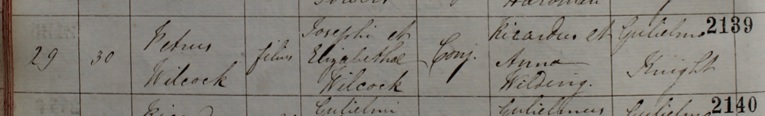 Josephi et Ricardus et Gulielmo 2139
29 30 Petrus filius Elizabethae Conj. Anna
Wilcock Wilcock Wilding. Knight
Gulielmi Gulielmus Gulielmo 2140